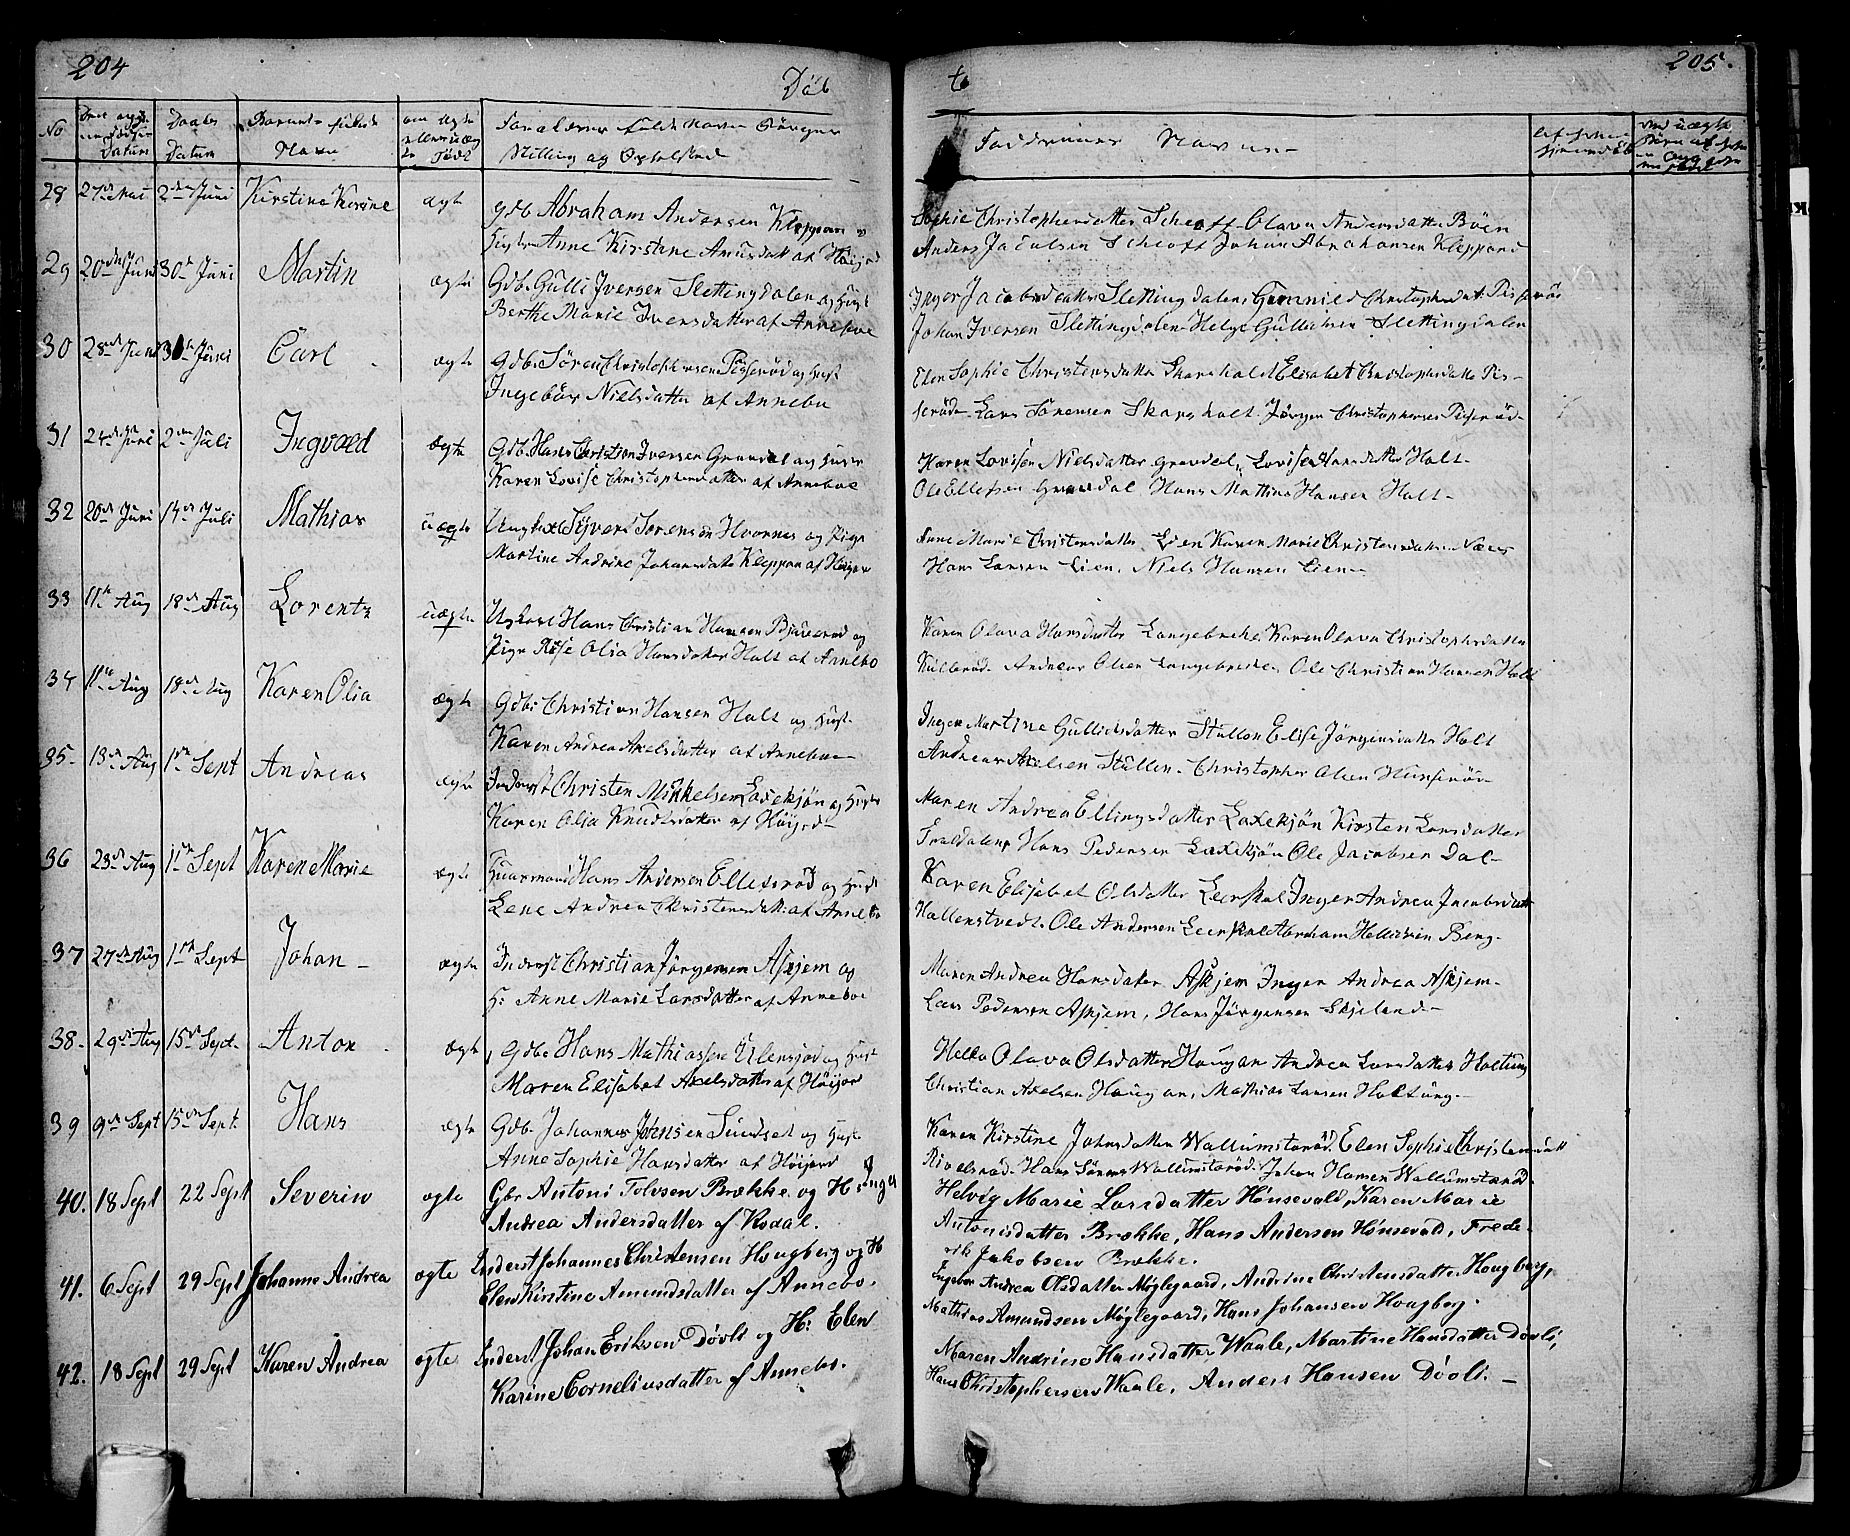 204
Døb
No
Datum
Daabs
Datum
Navn
Forældrenes fulde Navne
Stilling og Opholdsted
28 27de Mai 2den Juni Kirstine Karine ægte Gdb. Abraham Andersen Kleppan og
Anne Kirstine Amusdatt af Høijord
29 20de Juni 30te Juni Martin ægte Gdb. Gulli Iversen Slettingdalen og Hust
Berthe Marie Iversdatter af Anneboe
30 28de Juni 30te Juni Carl ægte Gdb. Søren Christophersen Pisserød og Hust
Ingebör Nielsdatter af Annebu
31 24de Juni 2den Juli Ingvald ægte Gdb. Hans Christian Iversen Grondal og Hustr
Karen Lovise Christophersdatter af Anneboe
32 20de Juni 14de Juli Mathias uægte Ungkarl Syvert Sørensen Hvarnes og Pige
Martine Andrine Johansdatt Kleppan af Høijor
33 11te Aug 18de Aug Lorentz uægte Ungkarl Hans Christian Hansen Bjuerød og
Pige Olia Hansdatter Holt af Annebo
34 11te Aug 18de Aug Karen Olia ægte Gdb: Christian Hansen Holt og Hust.
Karen Andrea Axelsdatter af Anneboe
35 13de Aug 1ste Sept Andreas ægte Inderst Christen Mikkelsen Laxekjøn og Hustr
Karen Olia Knudsdatter af Høijord
36 23de Aug 1ste Sept Karen Marie ægte Huusmand Hans Andersen Ellefsrød og Hust
Lene Andrea Christensdatt: af Annebo
37 27de Aug 1ste Sept Johan ægte Inderst Christian Jörgensen Askjem og
H: Anne Marie Larsdatter af Anneboe
38 29de Aug 15de Sept Anton ægte Gdbr Hans Mathiassen Ulensjød og Hust
Maren Elisabet Axelsdatter af Høijor
39 9de Sept 15de Sept. Hans ægte Gdb. Johannes Johnsen Sundset og Hust
Anne Sophie Hansdatter af Høijord
40. 18 Sept 22 Sept Severin ægte Gbr Antoni Tolvsen Brække og H: Inger
Andrea Andersdatter af Kodal.
41. 6 Sept 29 Sept Johanne Andrea ægte Inderst Johannes Christensen Hougberg og H
Elen Kirstine Amundsdatter af Annebo.
42. 18 Sept 29 Sept Karen Andrea ægte Inderst Johan Eriksen Døvle og H: Elen
Karine Corneliusdatter af Annebo.
te
205.
Faddernes Navne
Sophie Christophersdatter Scheaff Olava Andersdatter Böen
Anders Jacobsen Scheoff Johan Abrahamsen Kleppand
Inger Jacobsdatter Slettingdalen, Gunnild Christophersdat: Pisserød
Johan Iversen Slettingdalen Helge Gullichsen Slettingdalen
Elen Sophie Christensdatter Skorsholt Elisabet Christophersdatte Pis-
serød Lars Sörensen Skorsholt Jørgen Christophersen Pisserød
Karen Lovisen Nielsdatter Grondal, Lovise Hansdatter Holt
Ole Ellefsen Grondal Hans Mathias Hansen Holt
Anne Marie Christensdatter Lien Karen Marie Christensdatter Næss
Hans Larsen Lien, Niels Hansen Lien
Karen Olava Hansdatter Langebrekke Karen Olava Christophersdatter
Kullerød Andreas Olsen Langebrekke Ole Christian Hansen Holt
Inger Martine Gullichsdatter Stullen Elise Jörgensdatter Holt
Andreas Axelsen Stullen. Christopher Olsen Hunserød
Maren Andrea Ellingsdatter Laxekjön Kirsten Larsdatter
Hans Pedersen Laxekjön Ole Jacobsen Dal
Karen Elisabet Olsdatter Leerskal Inger Andrea Jacobsdatt
Hallenstvedt. Ole Andersen Leerskal Abraham Hellichsen Berg.
Maren Andrea Hansdatter Askjem Inger Andrea Askjem
Lars Pedersen Askjem, Hans Jörgensen Skjeland
Helle Olava Olsdatter Hougan Andrea Larsdatter Holtung
Christian Axelsen Hougan, Mathias Larsen Holtung.
Karen Kirstine Johnsdatter Wallumsrød Elen Sophie Christensdatt
Hans Sörens Wallumsrød. Johan Hansen Wallumsrød
Helvig Marie Larsdatter Hønsevald, Karen Marie
Antonisdatter Brække, Hans Andersen Hønsevald, Frede-
rik Jakobsen Brække.
Ingeber Andrea Olsdatter Møglegaard, Andrine Christensdatter Hougberg,
Mathias Amundsen Møglegaard, Hans Johansen Hougberg.
Maren Andrine Hansdatter Waale, Martine Hansdatter Døvle,
Hans Christophersen Waale, Anders Hansen Døvle.